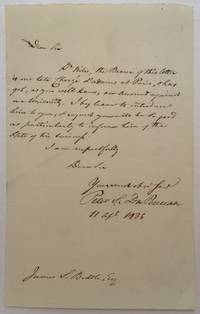 Dear Sir
Dr Niles, the Bearer of this letter
is our late Chargé d'affaires at Paris, & has
got, as you well know, our decree against
our University. I beg leave to introduce
him to you, & request you will be so good
as particularly to inform him of the
State of his
I am respectfully
Dear Sir
Your most obt Sert
Peter S. Du Ponceau
11 Sept 1835
James S. Biddle, Esq